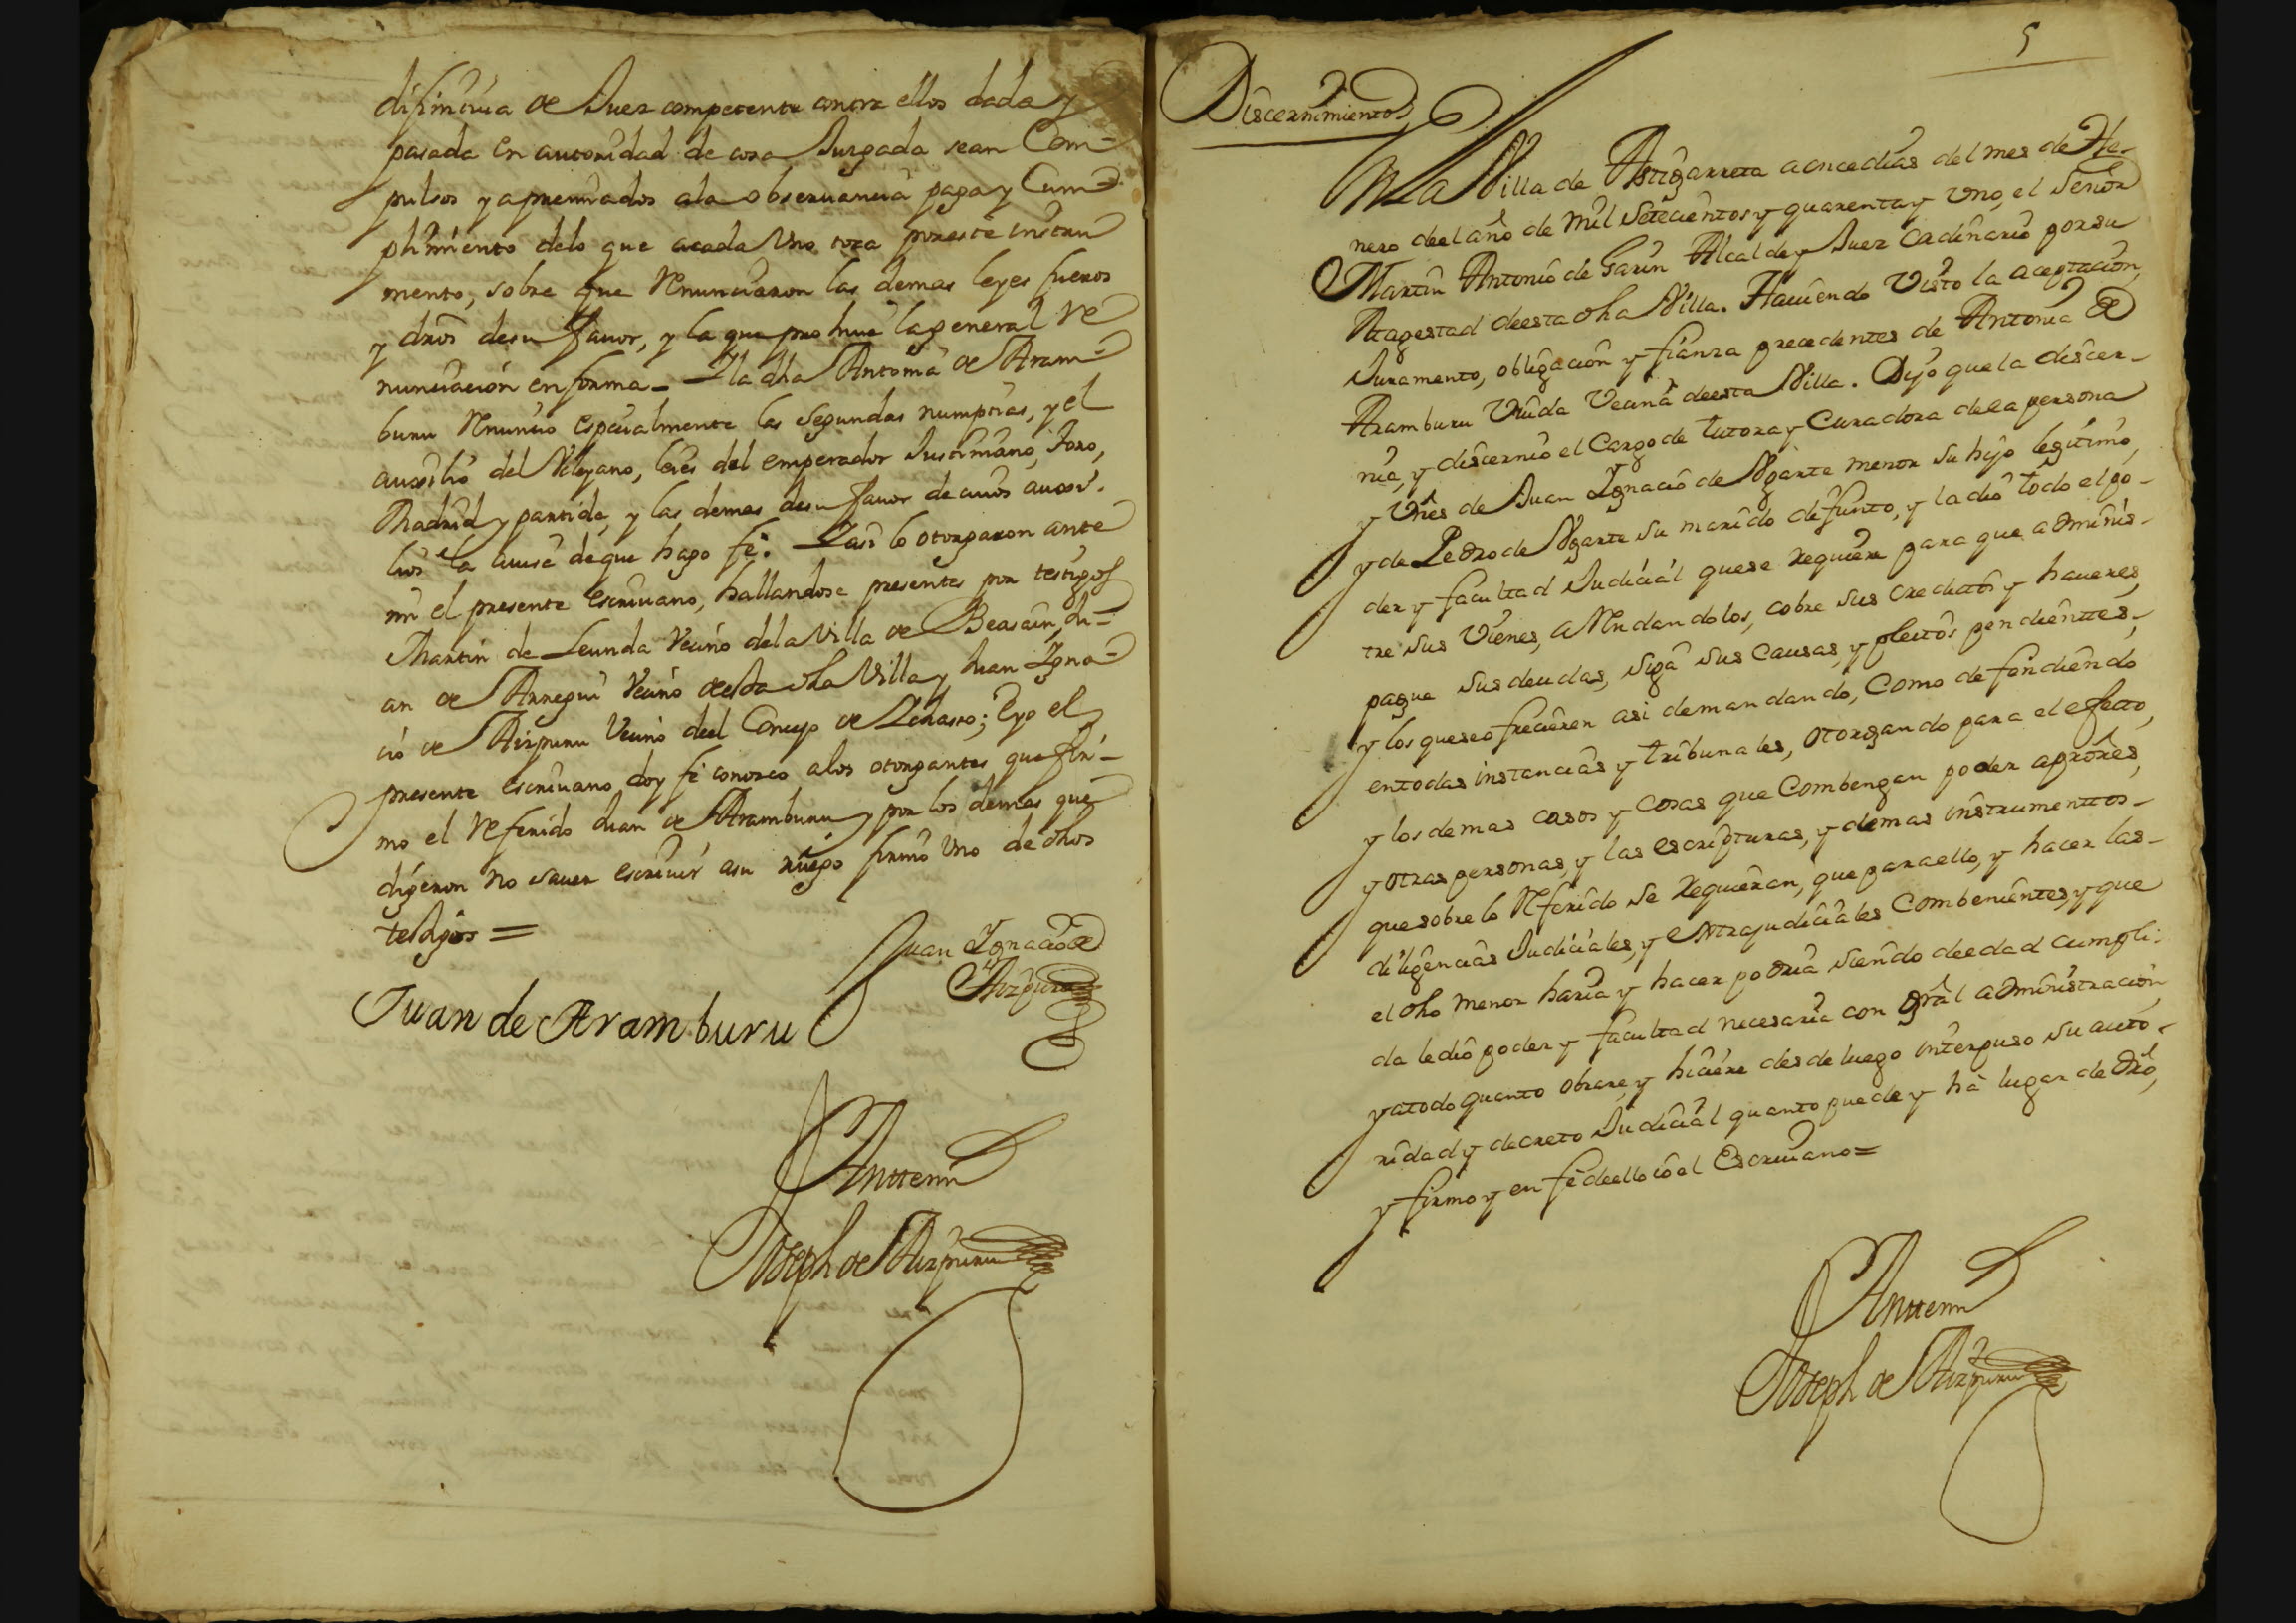 difinitiua de Juez competente contra ellos dada y
pasada en autoridad de cosa Juzgada sean Com=
pulsos y apremiados ala obseruancia paga y Cum=
plimiento delo que acada Uno toca poreste instru
mento, sobre que Renunciaron las demas leyes fueros
y dros desu fauor, y la que prohiue la general Re
nunciacion en forma_ Y la dha Antonia de Aram=
buru Renuncio espeçialmente las segundas numpcias, y el
auxilio del Veleyano, leies del emperador Justiniano, Toro,
Madrid y partida, y las demas desu fauor de cuios auxi-
lios la auise de que hago fe. Y asi lo otorgaron ante
mi el presente escriuano, hallandose presentes por testigos
Martin de Leunda Vecino dela Villa de Beasain, Ju=
an de Arregui Vecino deesta dha Villa y Juan Igna=
cio de Aizpuru Vecino deel Concejo de Ychaso; E yo el
presente escriuano doy fe conozco alos otorgantes que firi-
mo el Referido Juan de Aramburu y por los demas que
digeron no sauer escriuir asu ruego firmo Uno de dhos
testigos =
Juan Ignacio de
Aizpuru
Juan de Aramburu
Antemi
Joseph de Aizpuru
5
Discernimiento
En la Villa de Astigarreta a once dias del mes de He-
nero deel año de mil Setecientos y quarenta y Uno, el Señor
Martin Antonio de Garin Alcalde y Juez Ordinario por su
Magestad deesta dha Villa. Hauiendo Visto la aceptacion,
Juramento, obligacion y fianza precedentes de Antonia de
Aramburu Viuda Vecina deesta Villa. Dijo que la discer-
nia, y discernio el Cargo de tutora y Curadora dela persona
y Vies de Juan Ignacio de Ugarte menor su hijo legitimo,
y de Pedro de Ugarte su marido defunto, y la dio todo el po-
der y facultad Judicial quese requiere para que adminis-
tre sus Vienes, aRendandolos, cobre sus creditos y haueres,
pague sus deudas, siga sus causas, y pleitos pendienttes,
y los queseofrecieren asi demandando, Como defendiendo
entodas instancias y tribunales, otorgando para el efecto,
y los demas casos y cosas que Combengan poder aprores,
y otras personas, y las escripturas, y demas instrumenttos-
que sobre lo Referido se requieran, que paraello, y hacer las-
diligencias Judiciales, y extrajudiciales Combenientes, y que
el dho menor haria y hacer podria siendo deedad cumpli-
da le dio poder y facultad necesaria con gral administracion,
y atodo quanto obrare, y hiciere desde luego interpuso su auto-
ridad y decreto Judicial quanto puede y ha lugar de dro,
y firmo y en fe deello io el Escriuano=
Antemi
Joseph de Aizpuru